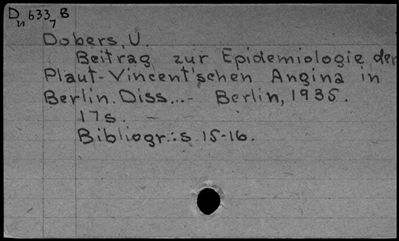 D 633 B
n 7
Dobers, U.
Beitrag zur Epidemiologie der
Plaut-Vincent'schen Angina in
Berlin. Diss...- Berlin, 1935.
17s. -
Bibliogr.: s. 15-16.